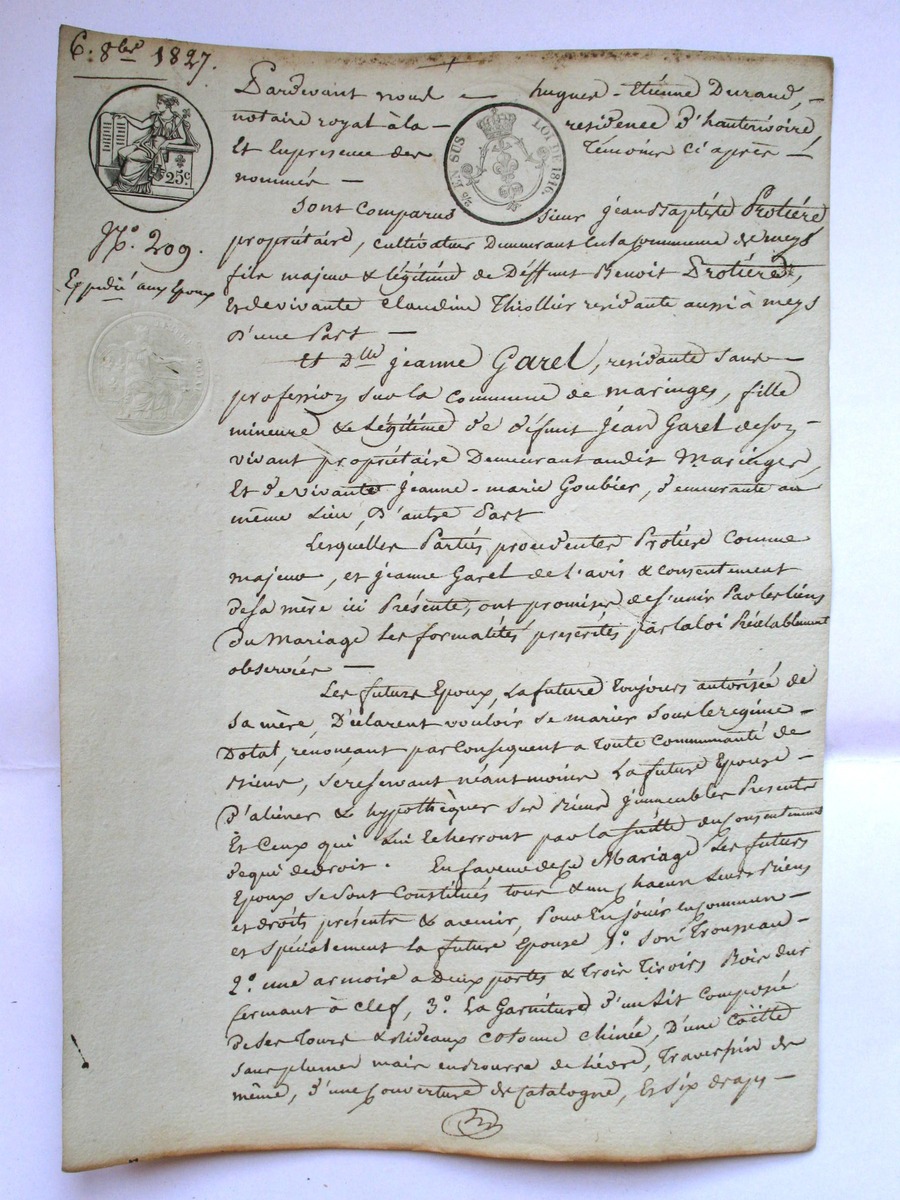 6. 8bre 1827.
25c.
2/10 EN SUS LOI DE 1816.
No. 209.
Expédié aux Epoux
Pardevant nous — hugues-Etiénne Durand, –
notaire royal à la — residence d'hauterivoire,
Et En presence des témoins ci après —
nommés —
sont comparus sieur jéan Baptiste Protière
propriétaire, cultivateur demeurant en la commune de meys
fils majeur & légitime de Déffunt Benoit Protière,
Et de vivante Claudine Thiollier residante aussi à meys
D'une Part —
Et Dlle jéanne Garel, residante sans —
profession sur la commune de maringes, fille
mineure & légitime de défunt Jéan Garel de son –
vivant propriétaire Demeurant audit Maringes,
Et de vivante Jeanne-marie Goubier, demeurante au
même Lieu, D'autre Part
Lesquelles Parties procedentes Protière comme
majeur, et jéanne Garel de l'avis & consentement
de sa mère ici Présente, ont promis de s'unir Par les liens
du Mariage Les formalités prescrites par la loi Préalablement
observées —
Les futurs Epoux, La future toujours autorisée de
sa mère, Déclarent vouloir se marier sous le régime –
Dotal, renonçant par conséquent a toute Communauté de
Biens, se reservant néantmoins La future Epouse –
D'aliéner & hypothèquer ses Biens jmmeubles Présents
Et Ceux qui lui Echerront par la suitte du consentement
de qui de droit. En faveur de ce Mariage Les futurs
Epoux se sont Constitués tous & un chacun leurs Biens
et droits présents & avenir, Pour En jouir en commun –
et spécialement La future Epouse 1o. son Trousseau –
2o. une armoire a Deux portes & trois Tiroirs Bois dur
fermant à clef, 3o. La Garniture d'un Lit composée
de ses Tours & rideaux cotonne chinée, D'une Coëtte
sans plumes mais en bourre de lièvre, Traversin de
même, d'une couverture de Catalogne, Et six draps –